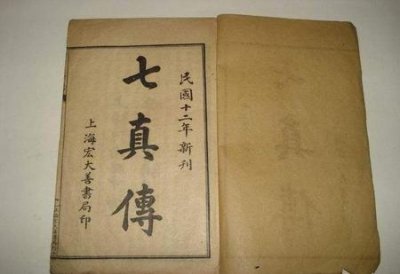 民國十二年新刊
七真傳
上海宏大善書局印